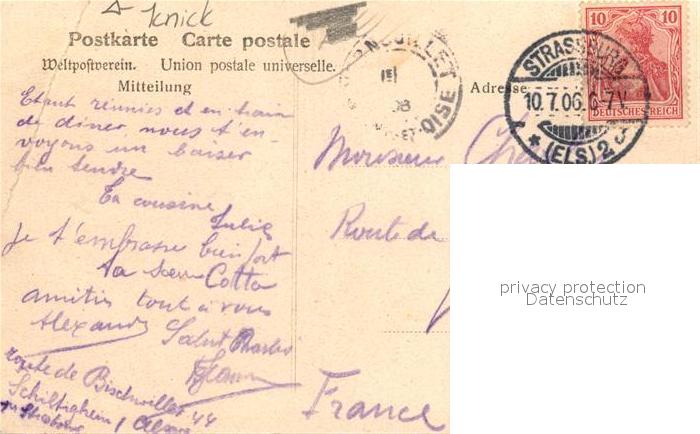 knick
Postkarte Carte postale
Weltpostverein. Union postale universelle.
Mitteilung
Adresse
10 10
DEUTSCHES REICH
STRASSBURG
10.7.06. 6-7V.
* (ELS) 2
OISE
Etant réunies et en train
de diner, nous t'en-
voyons un baiser
bien tendre
Ta cousine
Julie
Je t'embrasse bien fort
Ta sœur Cotta
amitiés tout à vous
Alexandre
Salut
Route de Bischwiller 44
Schiltigheim / Alsace
Monsieur
Route de
France
privacy protection
Datenschutz